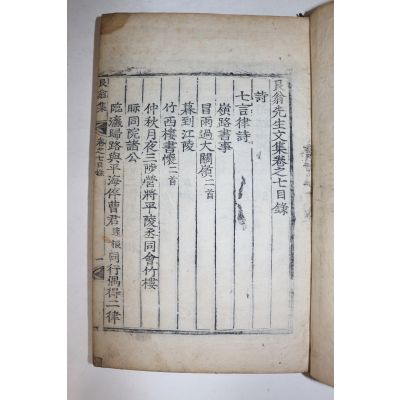 艮翁先生文集卷之七目錄
詩
七言律詩
嶺路書事
冒雨過大關嶺二首
暮到江陵
竹西樓書懷二首
仲秋月夜三陟營將平陵丞同會竹樓
眎同院諸公
臨瀛歸路與平海倅曹君 同行偶得二律
艮翁集 卷之七目錄 一